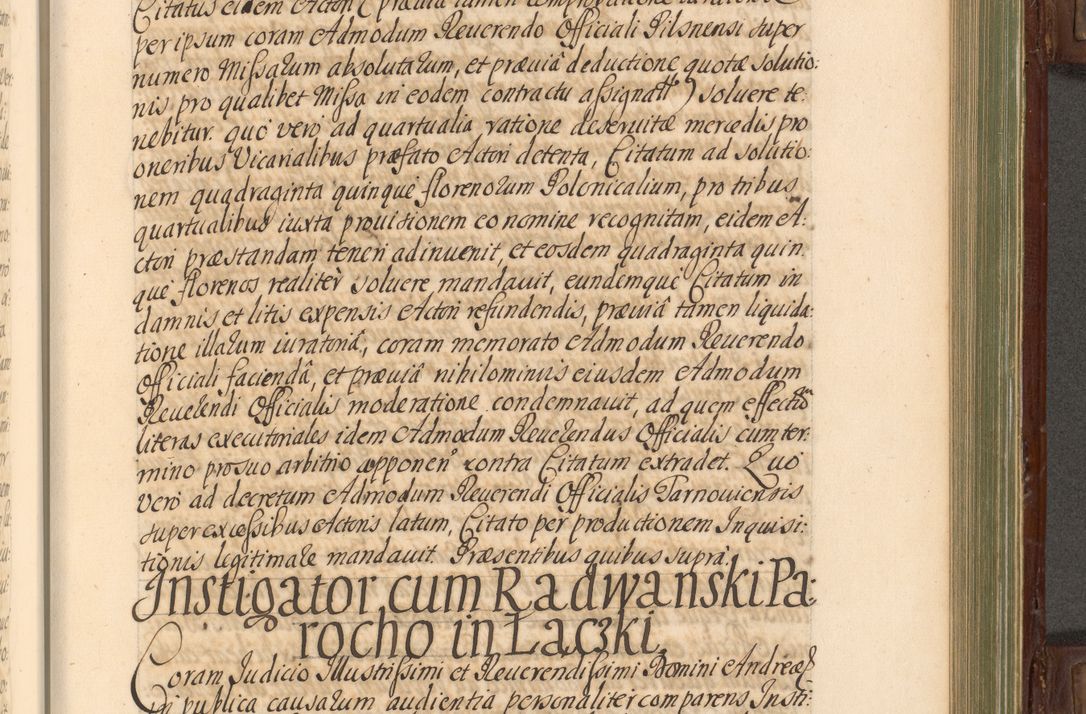 Citatus eidem Actori (prævia tamen comprobatione iuratoria
per ipsum coram Admodum Reuerendo Officiali Pilsnensi super
numero Missarum absolutarum, et præuiâ deductione quotæ solutio:
nis pro qualibet Missa in eodem contractu assignatt) soluere te:
nebitur. quò verò ad quartualia ratione deseruitæ mercedis pro
oneribus Vicarialibus præfato Actori detenta, Citatum ad solutio:
nem quadraginta quinque florenorum Polonicalium, pro tribus
quartualibus iuxta prouisionem eo nomine recognitam, eidem A:
ctori præstandam teneri adinuenit, et eosdem quadraginta quin
que florenos realiter soluere mandauit, eundemque Citatum in
damnis et litis expensis Actori refundendis, præuiâ tamen liquida:
tione illarum iuratoriâ, coram memorato Admodum Reuerendo
Officiali faciendâ, et præuiâ nihilominus eiusdem Admodum
Reuerendi Officialis moderatione condemnauit, ad quem effectũ
literas executoriales idem Admodum Reuerendus Officialis cum ter:
mino pro suo arbitrio apponen' contra Citatum extradet. Quò
verò ad decretum Admodum Reuerendi Officialis Tarnouiensis
super excessibus Actoris latum, Citato per productionem Inquisi:
tionis legitimare mandauit. Præsentibus quibus suprà.
Instigator cum Radwanski Pa:
rocho in Łączki.
Coram Judicio Illustrissimi et Reuerendissimi Domini Andreæ
in publica causarum audientia personaliter comparens Insti: